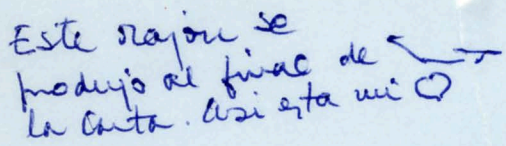 Este rajon se
produjo al final de
la carta. Asi esta mi